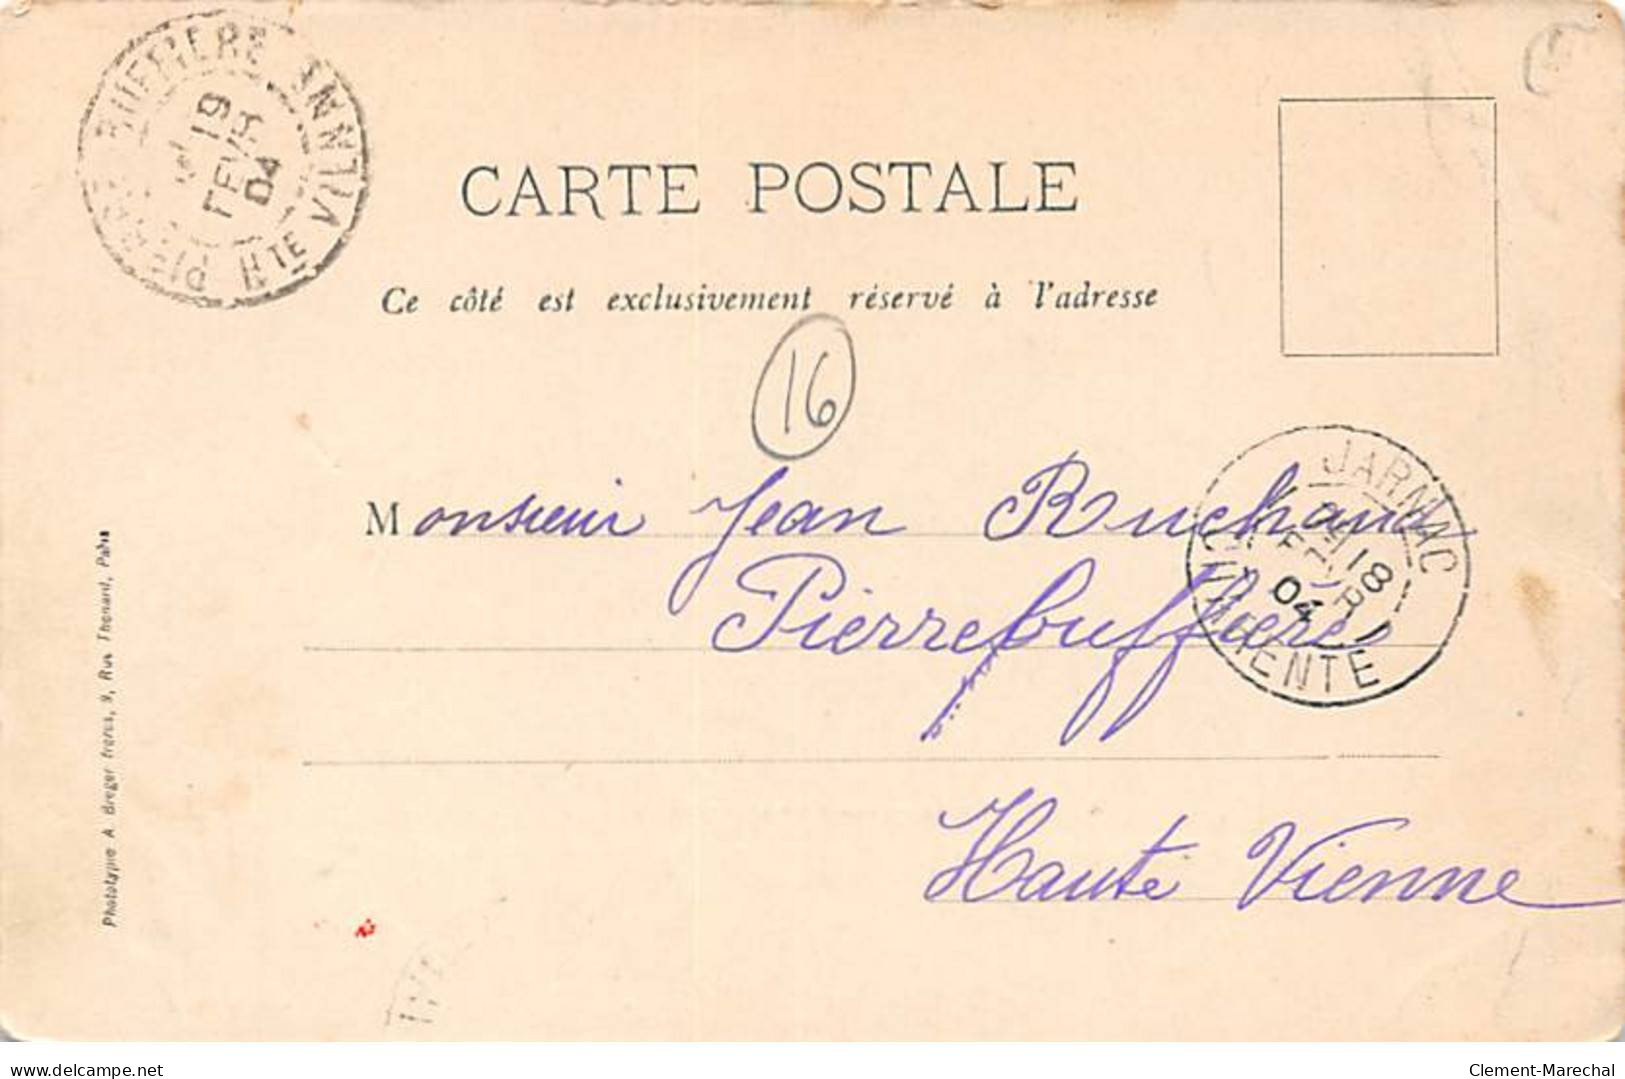 PIERRE BUFFIERE
HTE VIENNE
19
FEVR
04
CARTE POSTALE
Ce côté est exclusivement réservé à l'adresse
16
Monsieur Jean Ruchaud
JARNAC
18
FEVR
04
CHARENTE
Pierrebuffière
Haute Vienne
Phototypie A. Breger frères, 9, Rue Thenard, Paris
delcampe.net
Clement-Marechal